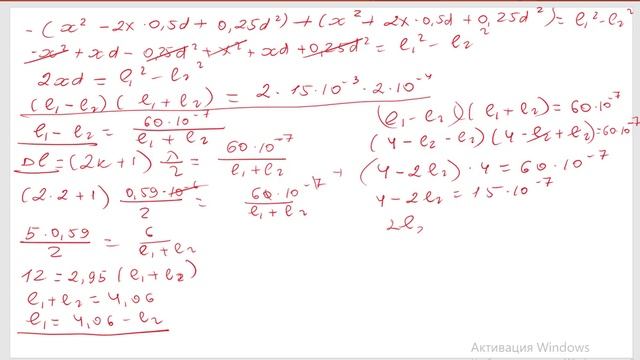 - (x² - 2x · 0,5d + 0,25d²) + (x² + 2x · 0,5d + 0,25d²) = l₁² - l₂²
- x² + xd - 0,25d² + x² + xd + 0,25d² = l₁² - l₂²
2xd = l₁² - l₂²
(l₁ - l₂)(l₁ + l₂) = 2 · 15 · 10⁻³ · 2 · 10⁻⁴
l₁ - l₂ = 60 · 10⁻⁷ / (l₁ + l₂)
Δl = (2k + 1) λ/2 = 60 · 10⁻⁷ / (l₁ + l₂)
(2 · 2 + 1) 0,59 · 10⁻⁶ / 2 = 60 · 10⁻⁷ / (l₁ + l₂)
5 · 0,59 / 2 = 6 / (l₁ + l₂)
12 = 2,95 (l₁ + l₂)
l₁ + l₂ = 4,06
l₁ = 4,06 - l₂
(l₁ - l₂)(l₁ + l₂) = 60 · 10⁻⁷
(4 - l₂ - l₂)(4 - l₂ + l₂) = 60 · 10⁻⁷
(4 - 2l₂) · 4 = 60 · 10⁻⁷
4 - 2l₂ = 15 · 10⁻⁷
2l₂
Активация Windows